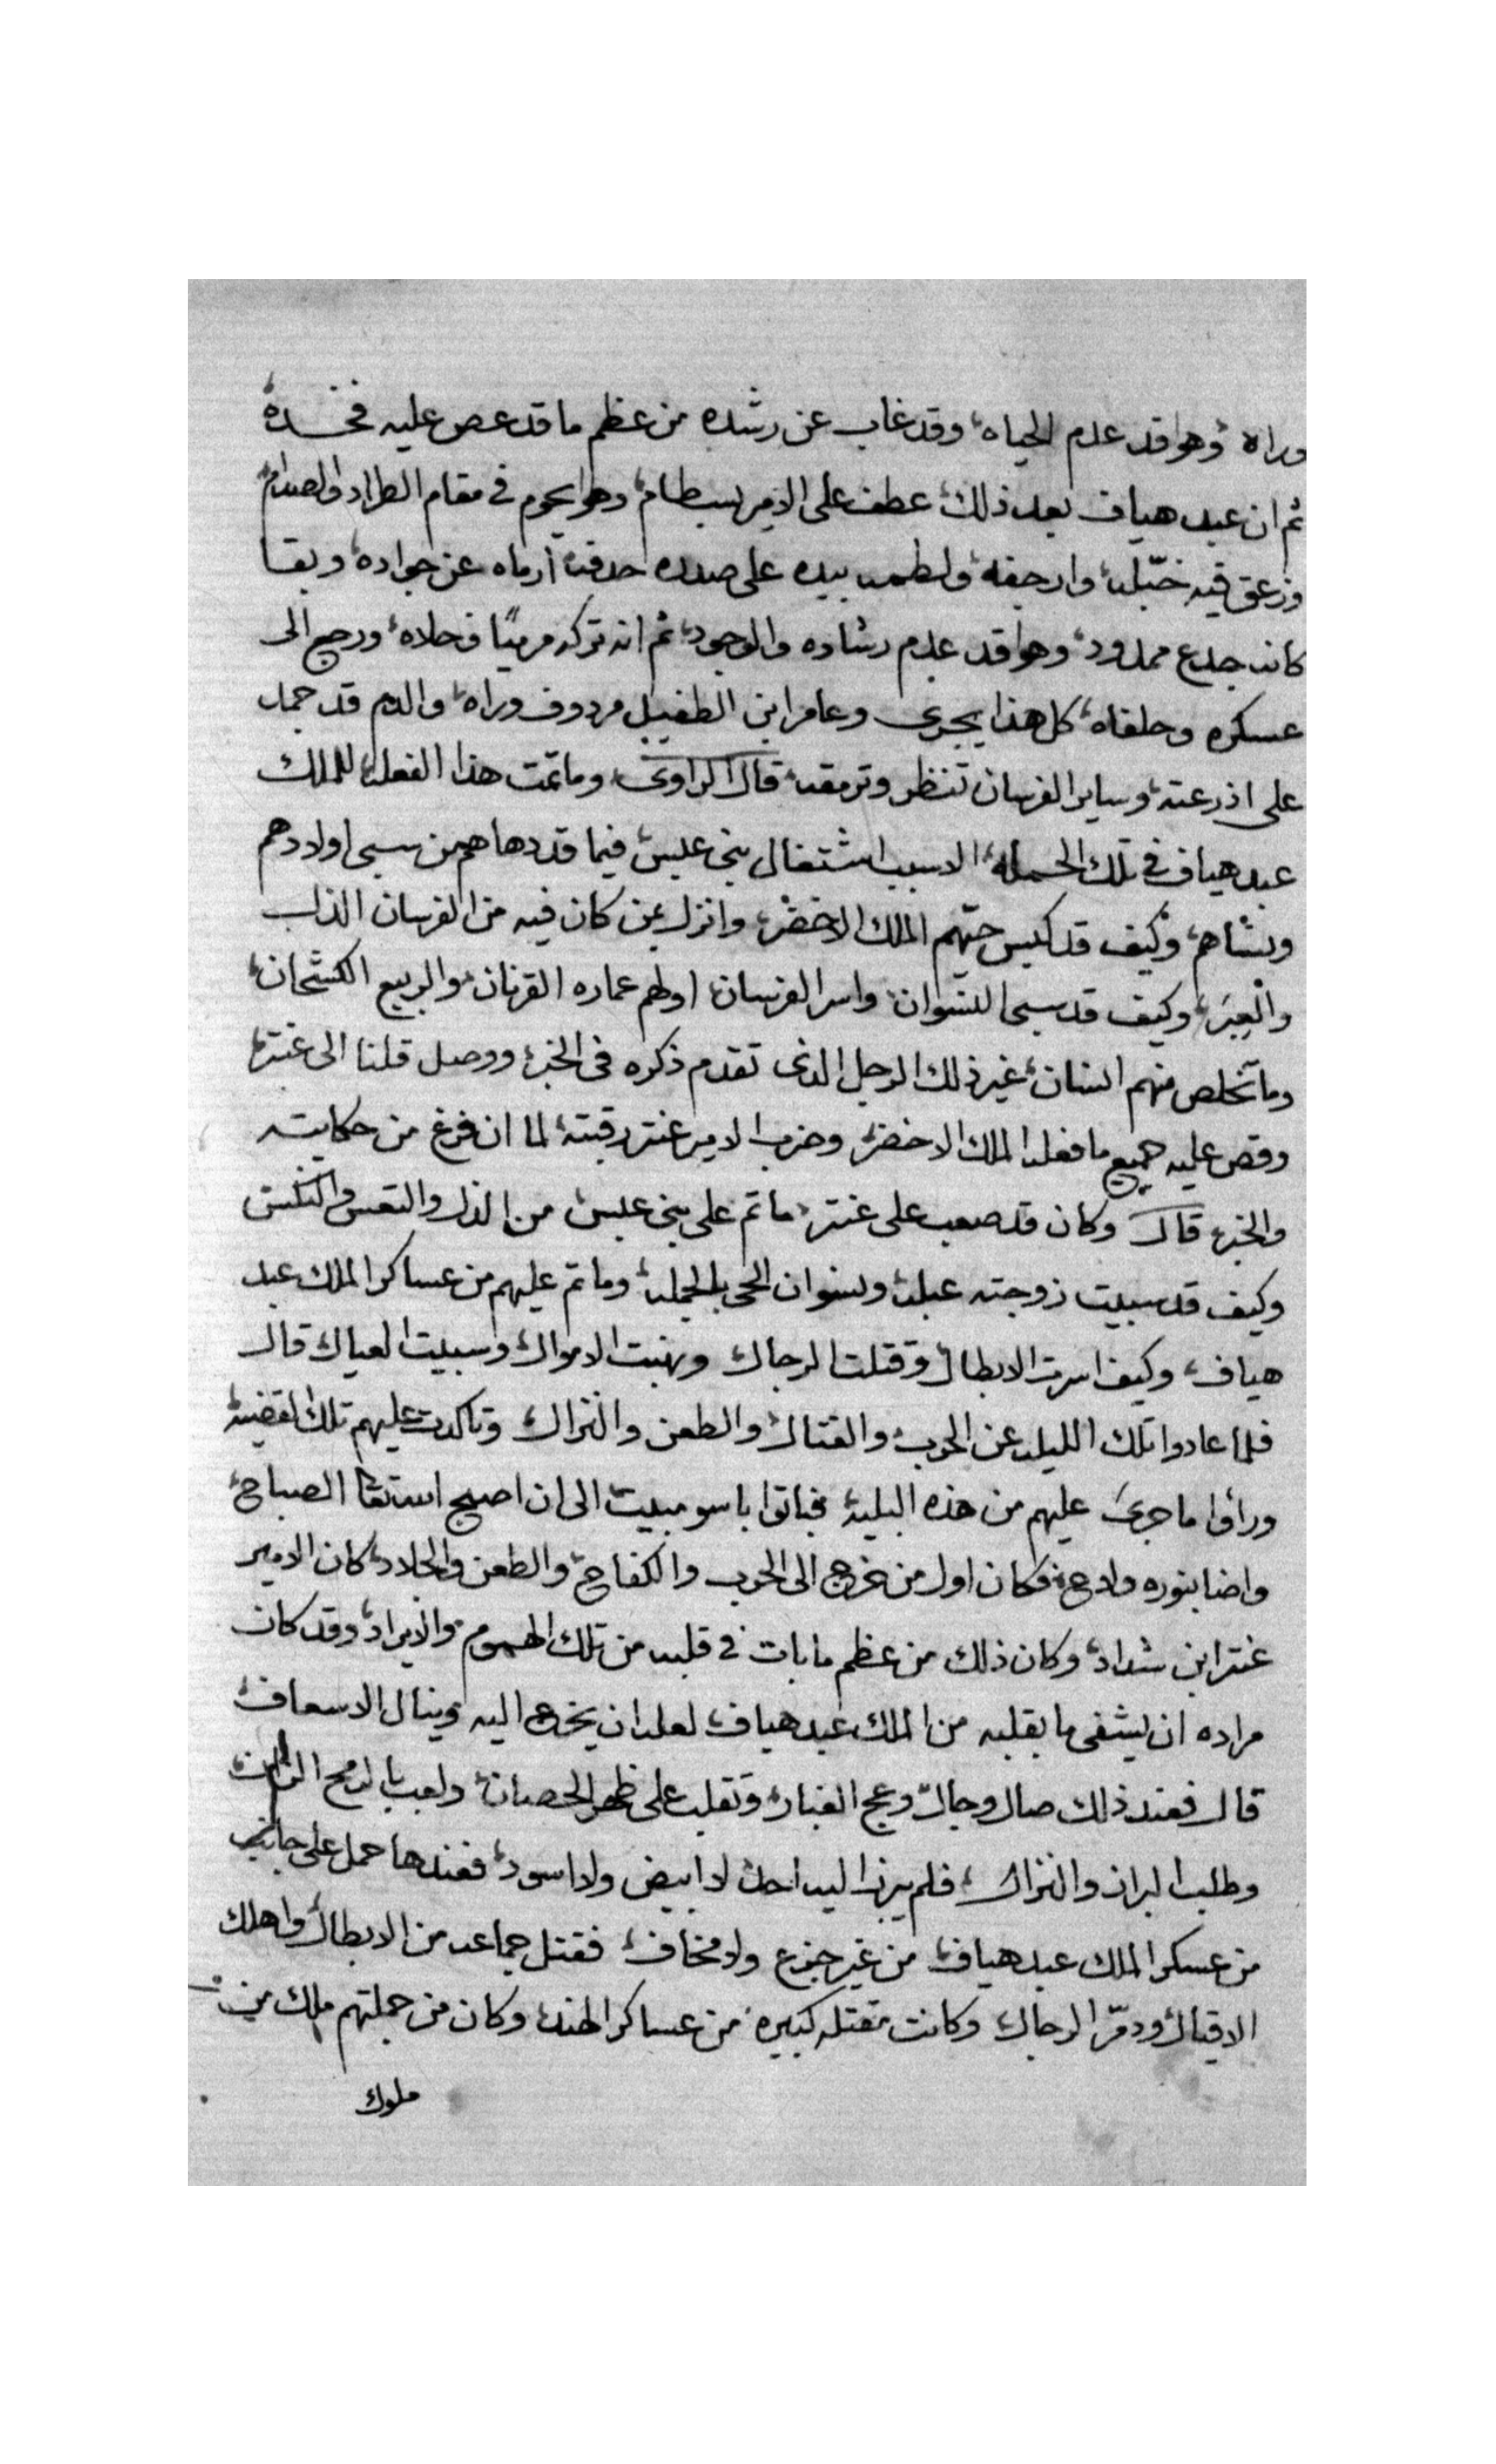 وراه وهوا قد عدم الحياه وقد غاب عن رشده من عظم ما قد عصر عليه فخده
ثم ان عبد هياف بعد ذلك عطف على الامير بسطام وهوا يحوم فى مقام الطراد والصدام
وزعق فيه خبّله وارجفه ولطمه بيده على صدره احدفه ارماه عن جواده وبقا
كانه جدع ممدود وهوا قد عدم رشاده والوجود ثم انه تركه مرميًا وخلاه ورجع الى
عسكره وحلفاه كل هذا يجرى وعامر ابن الطفيل مردوف وراه والدم قد جمد
على اذرعته وساير الفرسان تنظر وترمقه قال الراوى وما تمت هذا الفعله للملك
عبد هياف فى تلك الحمله الا بسبب اشتغال بنى عبس فيما قد دهاهم من سبى اولادهم
ونساهم وكيف قد كبس حيّهم الملك الاخضر وانزل بمن كان فيه من الفرسان الذل
والعِبَر وكيف قد سبى النسوان واسر الفرسان اولهم عماره القرنان والربيع الكشحان
وما تخلص منهم انسان غير ذلك الرجل الذى تقدم ذكره فى الخبر ووصل قلنا الى عنتر
وقص عليه جميع ما فعله الملك الاخضر وضرب الامير عنتر رقبته لما ان فرغ من حكايته
والخبر قال وكان قد صعب على عنتر ما تم على بنى عبس من الذل والتعس والنكس
وكيف قد سبيت زوجته عبله ونسوان الحى بالجمله وما تم عليهم من عساكر الملك عبد
هياف وكيف اسرت الابطال وقتلت الرجال ونهبت الاموال وسبيت العيال قال
فلما عادوا تلك الليله عن الحرب والقتال والطعن والنزال وتاكدت عليهم تلك القضيه
وراوا ما جرى عليهم من هذه البليه فباتوا باسو مبيت الى ان اصبح الصباح
واضا بنوره ولاح فكان اول من خرج الى الحرب والكفاح والطعن والجلاد كان الامير
عنتر ابن شداد وكان ذلك من عظم ما بات فى قلبه من تلك الهموم والايراد وقد كان
مراده ان يشفى ما بقلبه من الملك عبد هياف لعله ان يخرج اليه وينال الاسعاف
قال فعند ذلك صال وجال وعج الغبار وتقلب على ظهر الحصان ولعب بالرمح
وطلب البراز والنزال فلم يبرز اليه احد لا ابيض ولا اسود فعندها حمل على جانب
من عسكر الملك عبد هياف من غير جزع ولا مخاف فقتل جماعه من الابطال واهلك
الاقيال ودمّر الرجال وكانت مقتله كبيره من عساكر الهند وكان من جملتهم ملك من
ملوك